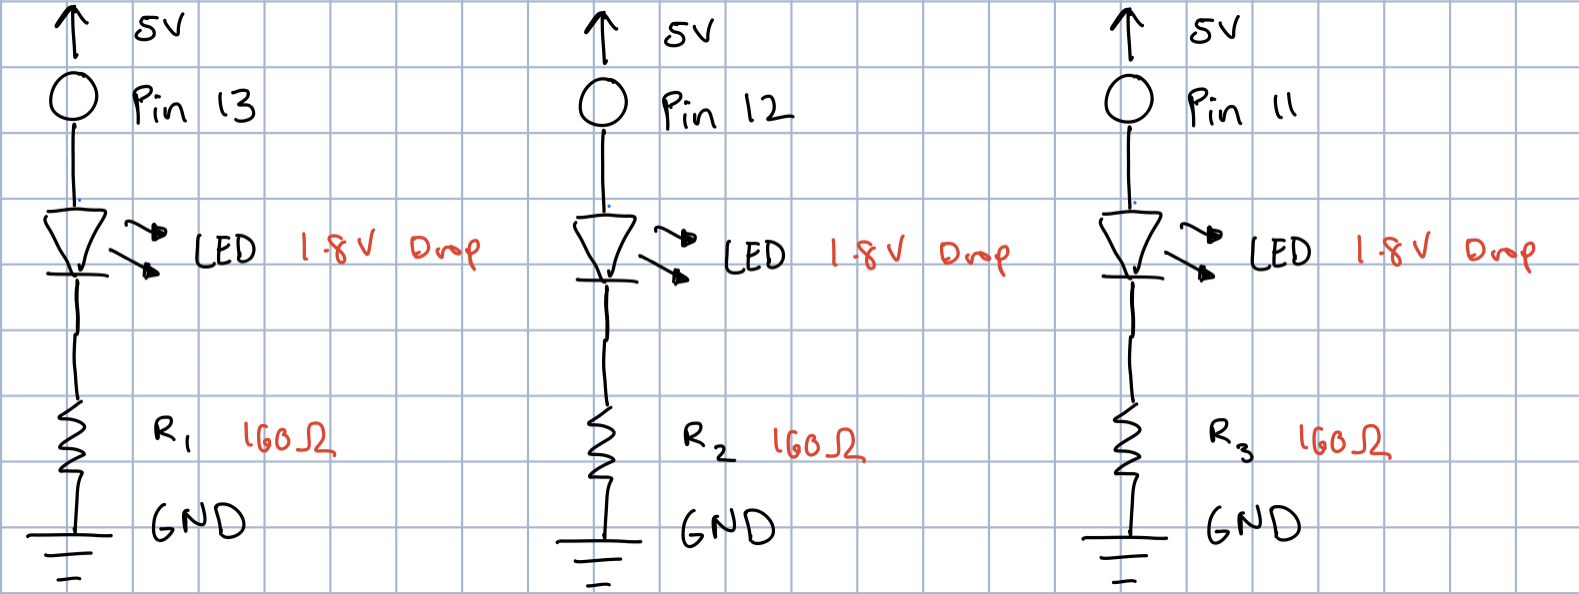 5V
Pin 13
LED 1.8V Drop
R1 160Ω
GND
5V
Pin 12
LED 1.8V Drop
R2 160Ω
GND
5V
Pin 11
LED 1.8V Drop
R3 160Ω
GND